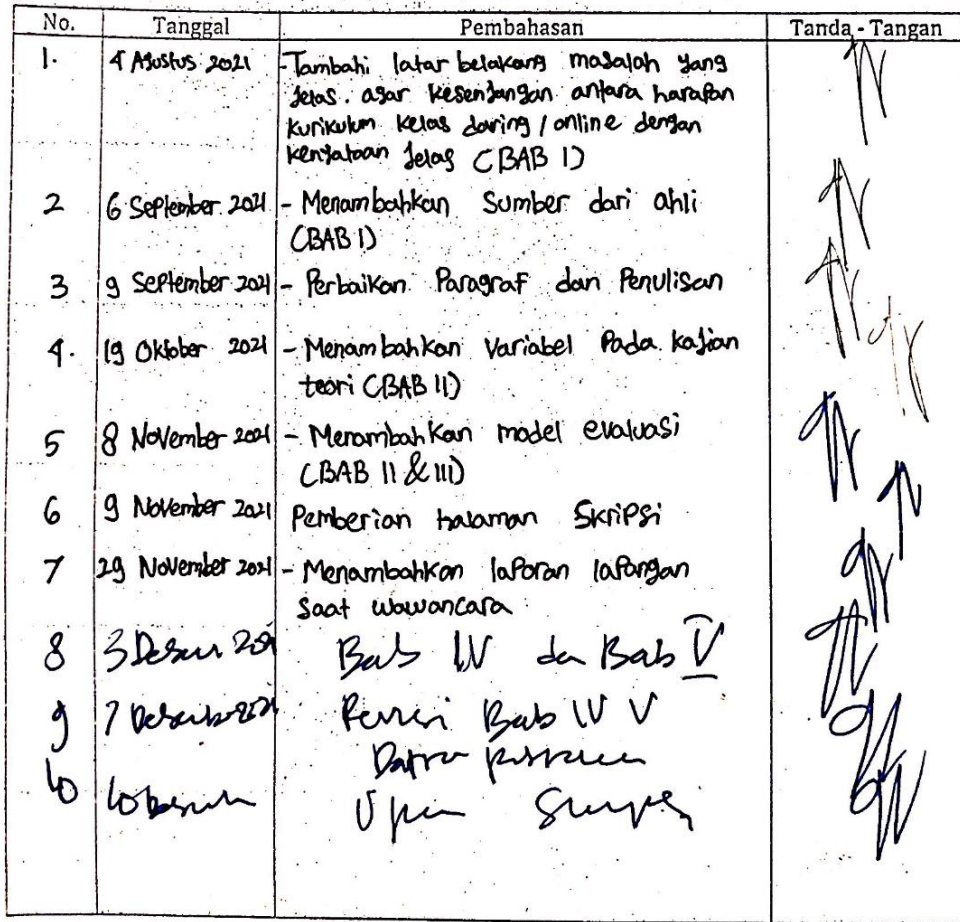 No. Tanggal Pembahasan Tanda - Tangan
1. 4 Agustus 2021 - Tambahi latar belakang masalah yang
jelas. agar kesenjangan antara harapan
kurikulum kelas daring / online dengan
kenyataan jelas (BAB I)
2 6 September 2021 - Menambahkan Sumber dari ahli
(BAB I)
3 9 September 2021 - Perbaikan Paragraf dan Penulisan
4. 19 Oktober 2021 - Menambahkan Variabel Pada kajian
teori (BAB II)
5 8 November 2021 - Menambahkan model evaluasi
(BAB II & III)
6 9 November 2021 Pemberian halaman Skripsi
7 29 November 2021 - Menambahkan laporan lapangan
saat wawancara
8 3 Bab IV da Bab V
9 7 Revisi Bab IV V
10